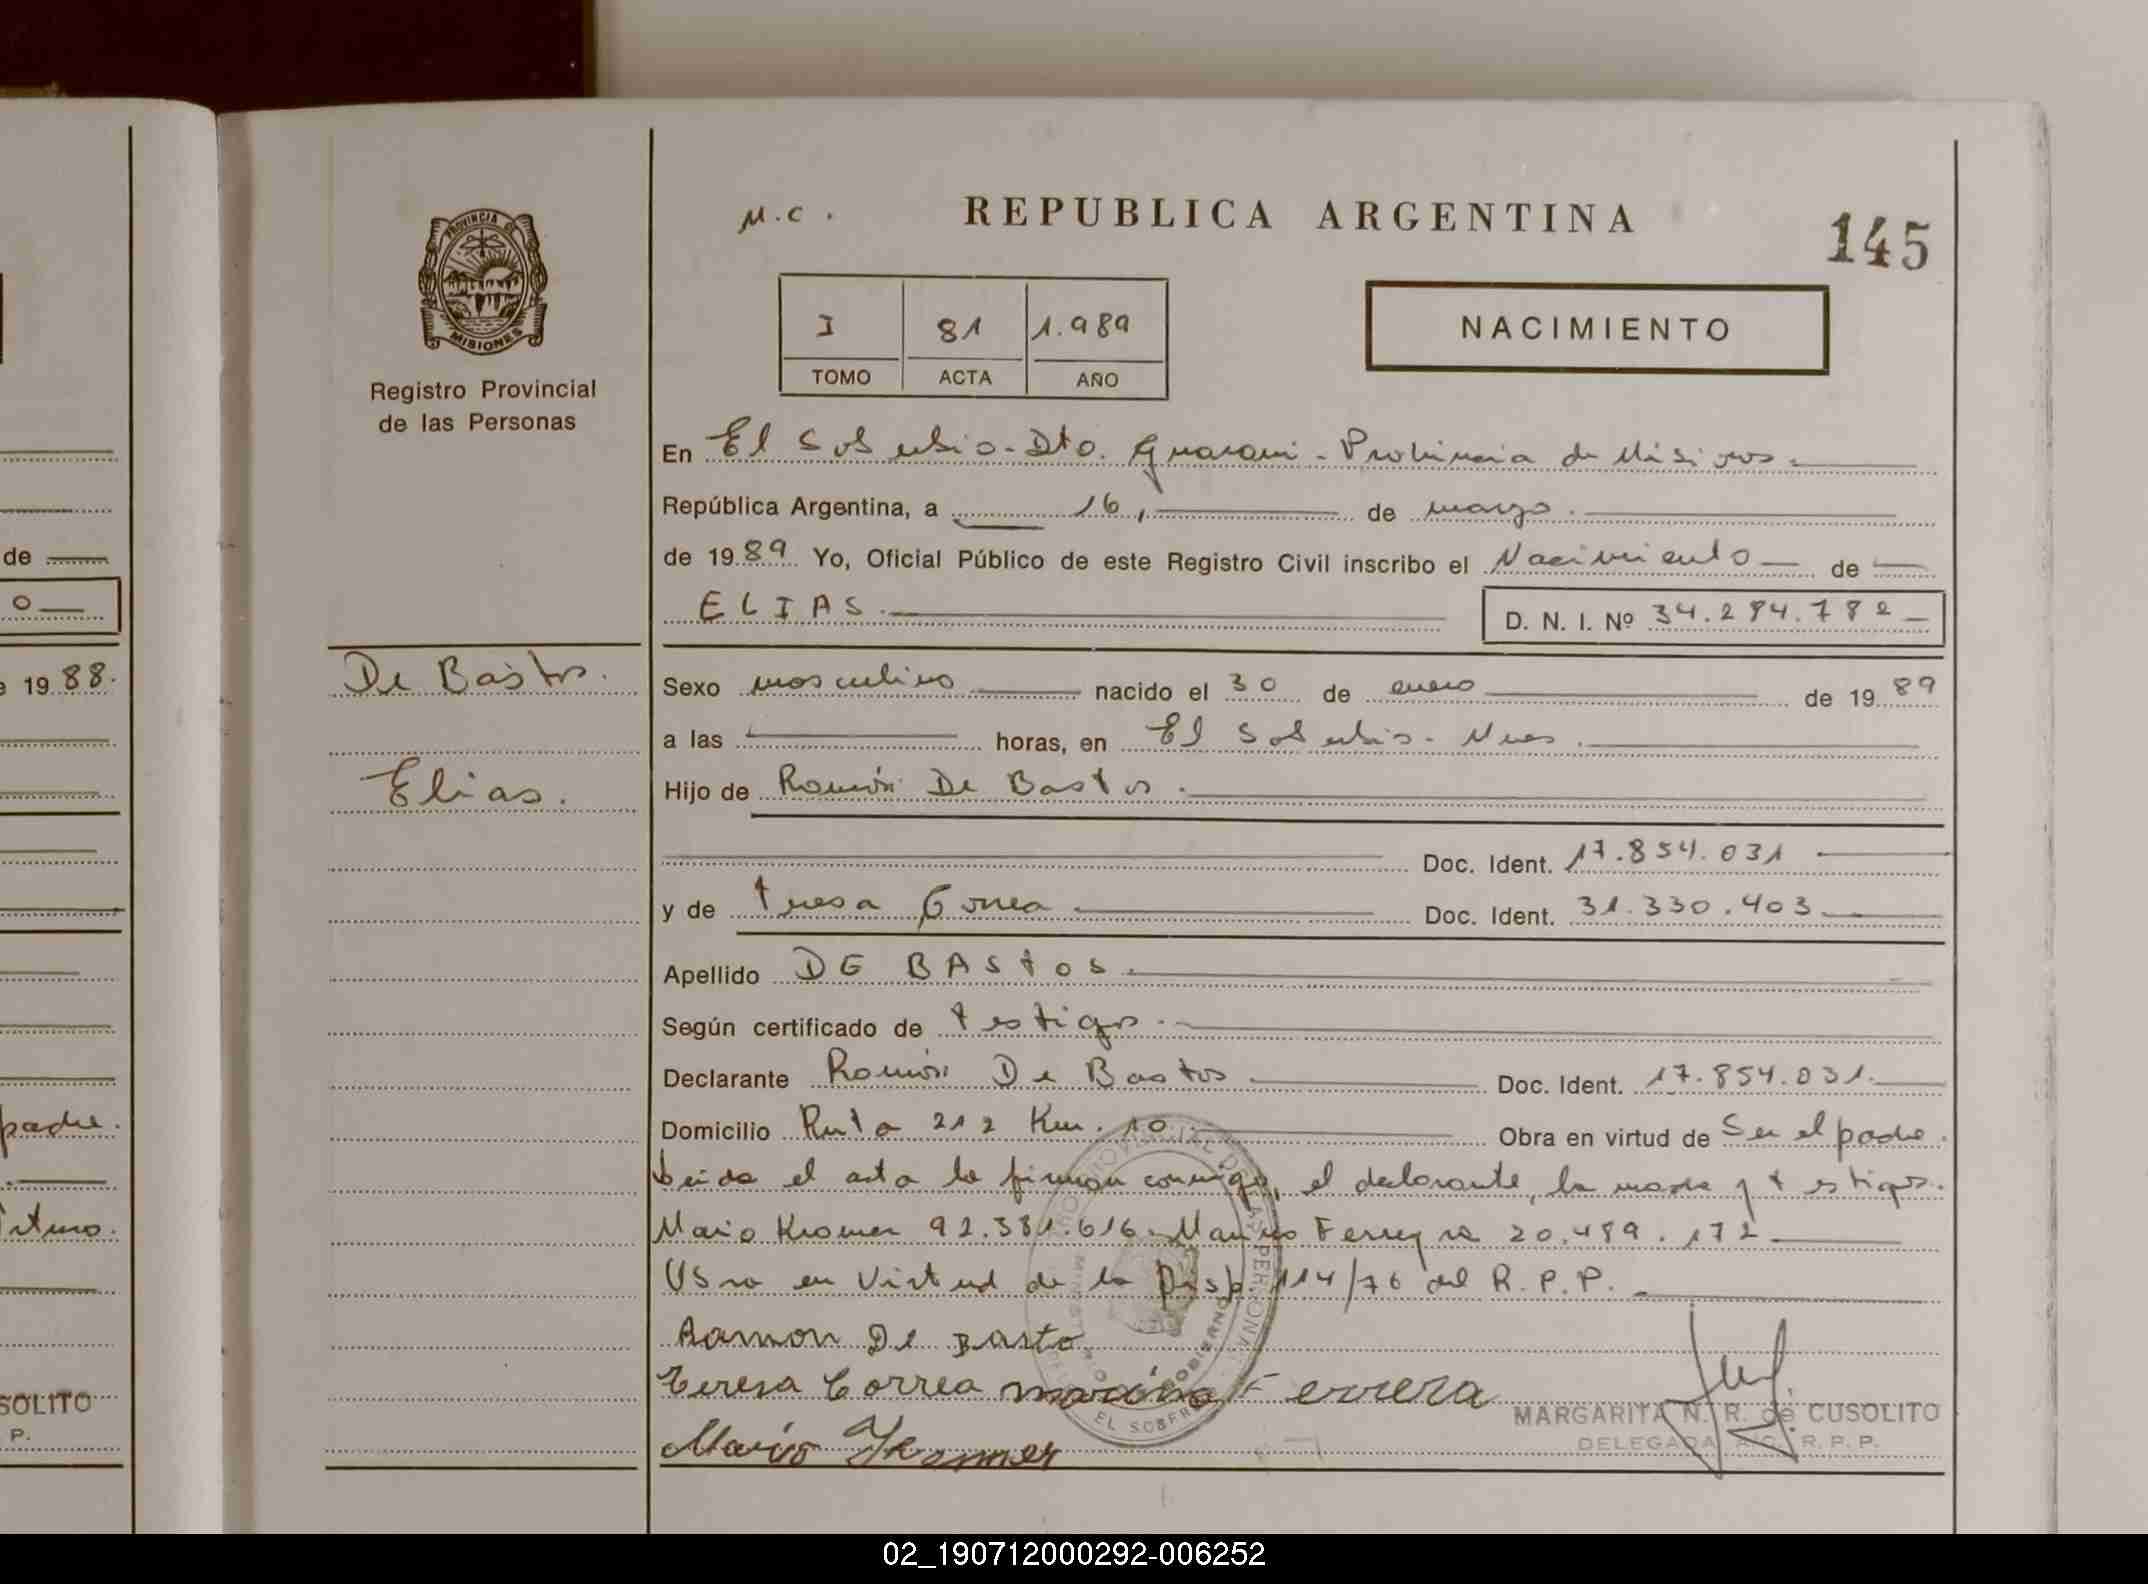 de
O
19 88.
padre.
Arturo.
SOLITO
P.
PROVINCIA DE
MISIONES
Registro Provincial
de las Personas
De Bastos.
Elias.
M.C.
REPUBLICA ARGENTINA
145
I 81 1.989
TOMO ACTA AÑO
NACIMIENTO
En El Soberbio - Dto. Guarani - Provincia de Misiones.
República Argentina, a 16, de marzo.
de 1989 Yo, Oficial Público de este Registro Civil inscribo el Nacimiento de
ELIAS. D. N. I. Nº 34.284.782
Sexo masculino nacido el 30 de enero de 1989
a las horas, en El Soberbio - Mnes.
Hijo de Ramón De Bastos.
Doc. Ident. 17.854.031
y de teresa Correa Doc. Ident. 31.330.403
Apellido DE BAStos.
Según certificado de testigos.
Declarante Ramón De Bastos Doc. Ident. 17.854.031.
Domicilio Ruta 212 Km. 10 Obra en virtud de Ser el padre.
Leida el acta la firman conmigo, el declarante, la madre y testigos.
Mario Kromer 92.381.616 Ferreyra 20.489.172
en Virtud de la Disp. 114/76 del R.P.P.
Ramon De Basto
Teresa Correa Ferrera
Mario Kromer
MARGARITA N. R. de CUSOLITO
DELEGADA R. P. P.
EL SOBERBIO
02_190712000292-006252